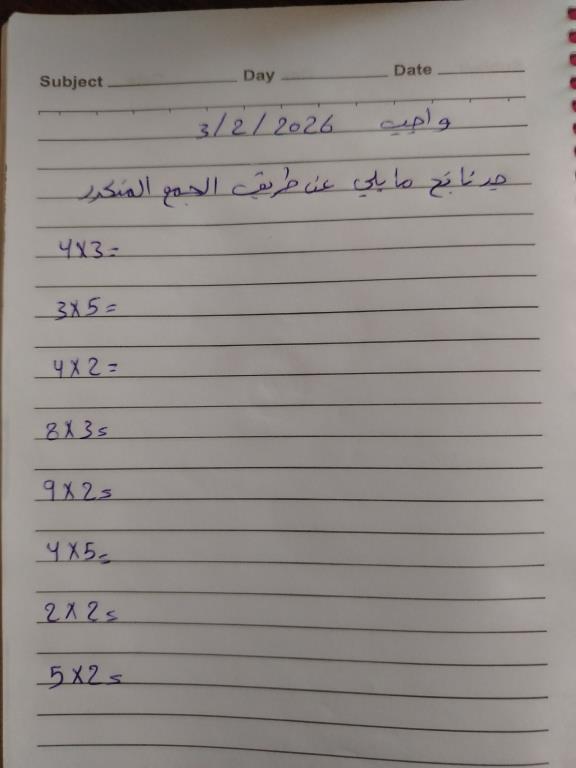 Subject Day Date
واجب 3/2/2026
جد ناتج ما يلي عن طريق الجمع المتكرر
4x3=
3x5=
4x2=
8x3=
9x2=
4x5=
2x2=
5x2=